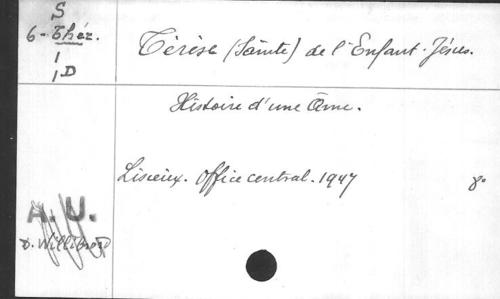 S
6-Thér.
1
1D
Térèse (Sainte) de l'Enfant-Jésus.
Histoire d'une Âme.
Lisieux. Office central. 1947 8°
A. U.
D. Willibrord